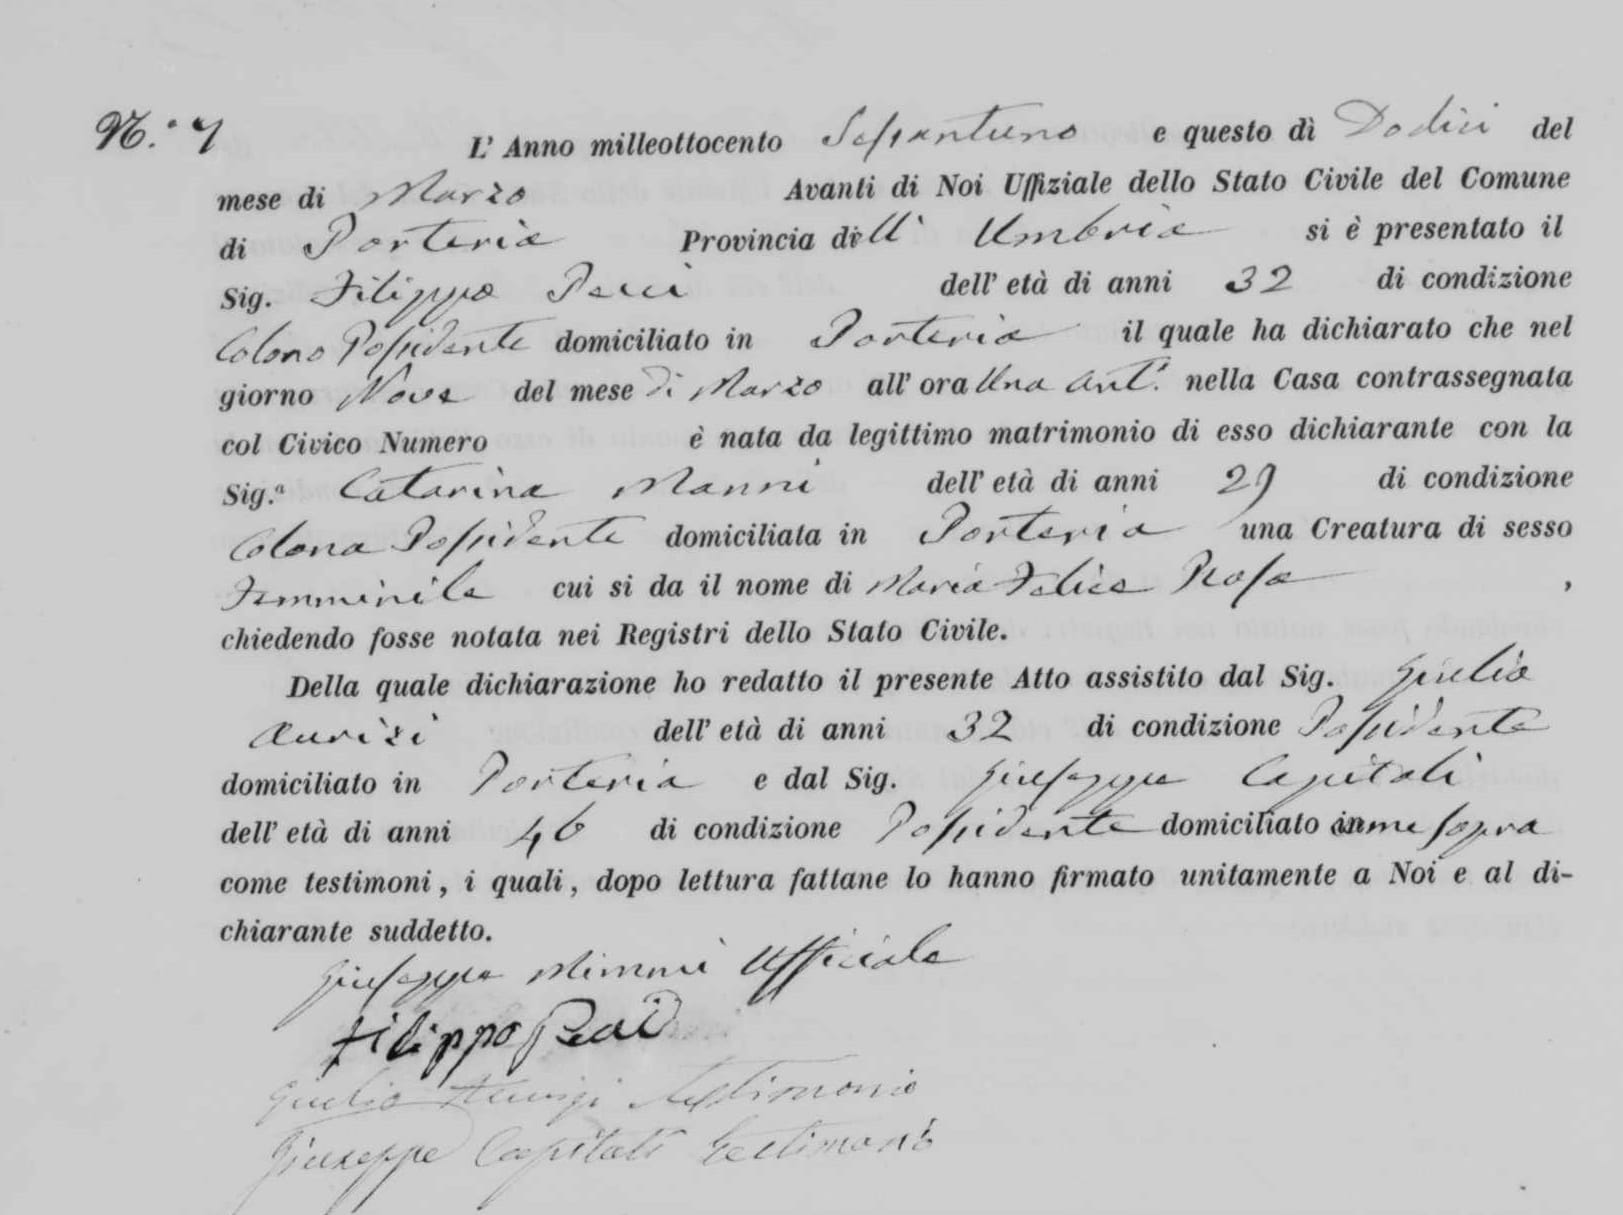 N.° 7 L' Anno milleottocento Sessantuno e questo dì Dodici del
mese di Marzo Avanti di Noi Uffiziale dello Stato Civile del Comune
di Porteria Provincia dell' Umbria si è presentato il
Sig. Filippo dell' età di anni 32 di condizione
Colono Possidente domiciliato in Porteria il quale ha dichiarato che nel
giorno Nove del mese di Marzo all' ora Una ant. nella Casa contrassegnata
col Civico Numero è nata da legittimo matrimonio di esso dichiarante con la
Sig.ª Catarina Manni dell' età di anni 29 di condizione
Colona Possidente domiciliata in Porteria una Creatura di sesso
Femminile cui si da il nome di Maria Felice Rosa ,
chiedendo fosse notata nei Registri dello Stato Civile.
Della quale dichiarazione ho redatto il presente Atto assistito dal Sig. Giulio
Aurizi dell' età di anni 32 di condizione Possidente
domiciliato in Porteria e dal Sig. Giuseppe Capitali
dell' età di anni 46 di condizione Possidente domiciliato come sopra
come testimoni, i quali, dopo lettura fattane lo hanno firmato unitamente a Noi e al di-
chiarante suddetto.
Giuseppe Mimmi Ufficiale
Filippo
Giulio Testimonio
Giuseppe Capitali testimonio